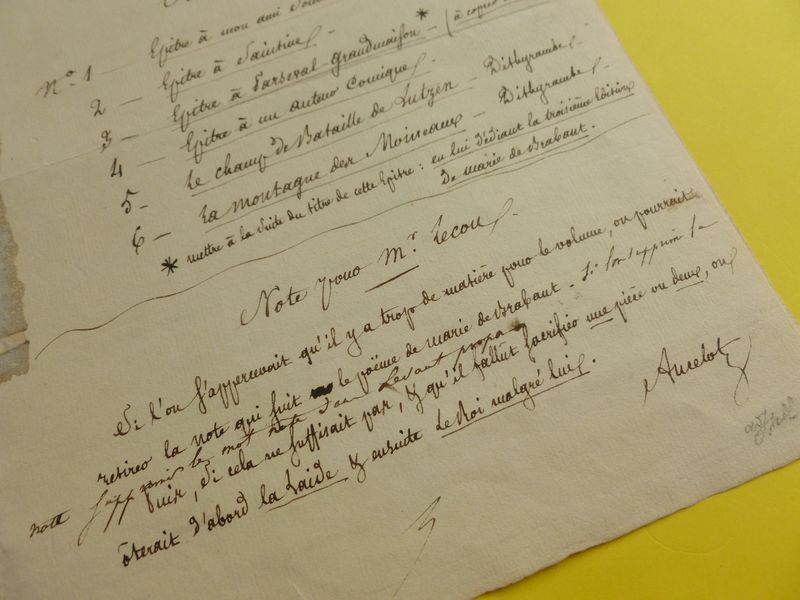 N.o 1 — Epitre à mon ami
2 — Epitre à Saintine
3 — Epitre à Parseval-grandmaison * — (à copier
4 — Epitre à un auteur Comique
5 — Le champ de Bataille de Lutzen — Dithyrambe
6 — La montagne des Moineaux — Dithyrambe
* mettre à la Suite du titre de cette Epitre : en lui dédiant la troisième Edition
De marie de Brabant.
Note pour M.r Lecou
Si l'on s'appercevait qu'il y a trop de matière pour le volume, on pourrait
retirer la note qui suit le poëme de marie de Brabant - Si l'on supprime la
note supprimer les mot note
puis, Si cela ne suffisait pas, & qu'il fallut Sacrifier une pièce ou deux, on
ôterait d'abord la Laide & ensuite Le Roi malgré lui.
Ancelot